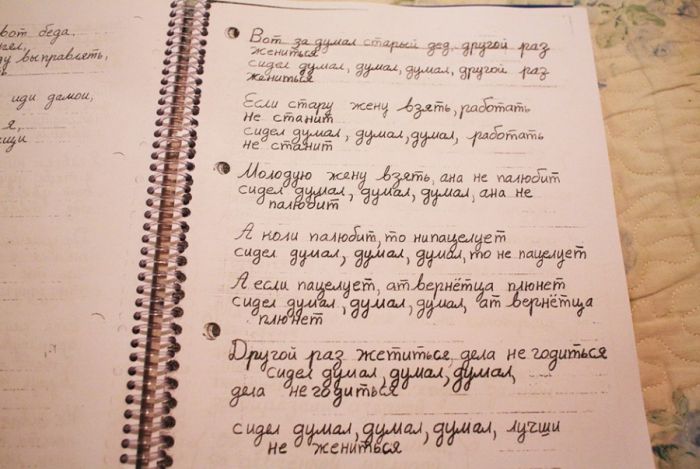 вот беда.
ду выправлеть,
иди дамои,
я,
Вот за думал старый дед другой раз
жениться
сидел думал, думал, думал, другой раз
жениться
Если стару жену взять, работать
не станит
сидел думал, думал, думал, работать
не станит
Молодую жену взять, ана не палюбит
сидел думал, думал, думал, ана не
палюбит
А коли палюбит, то нипацелует
сидел думал, думал, думал, то не пацелует
А если пацелует, атвернётца плюнет
сидел думал, думал, думал, ат вернётца
плюнет
Другой раз жетиться, дела не годиться
сидел думал, думал, думал,
дела не годиться
сидел думал, думал, думал, лучши
не жениться